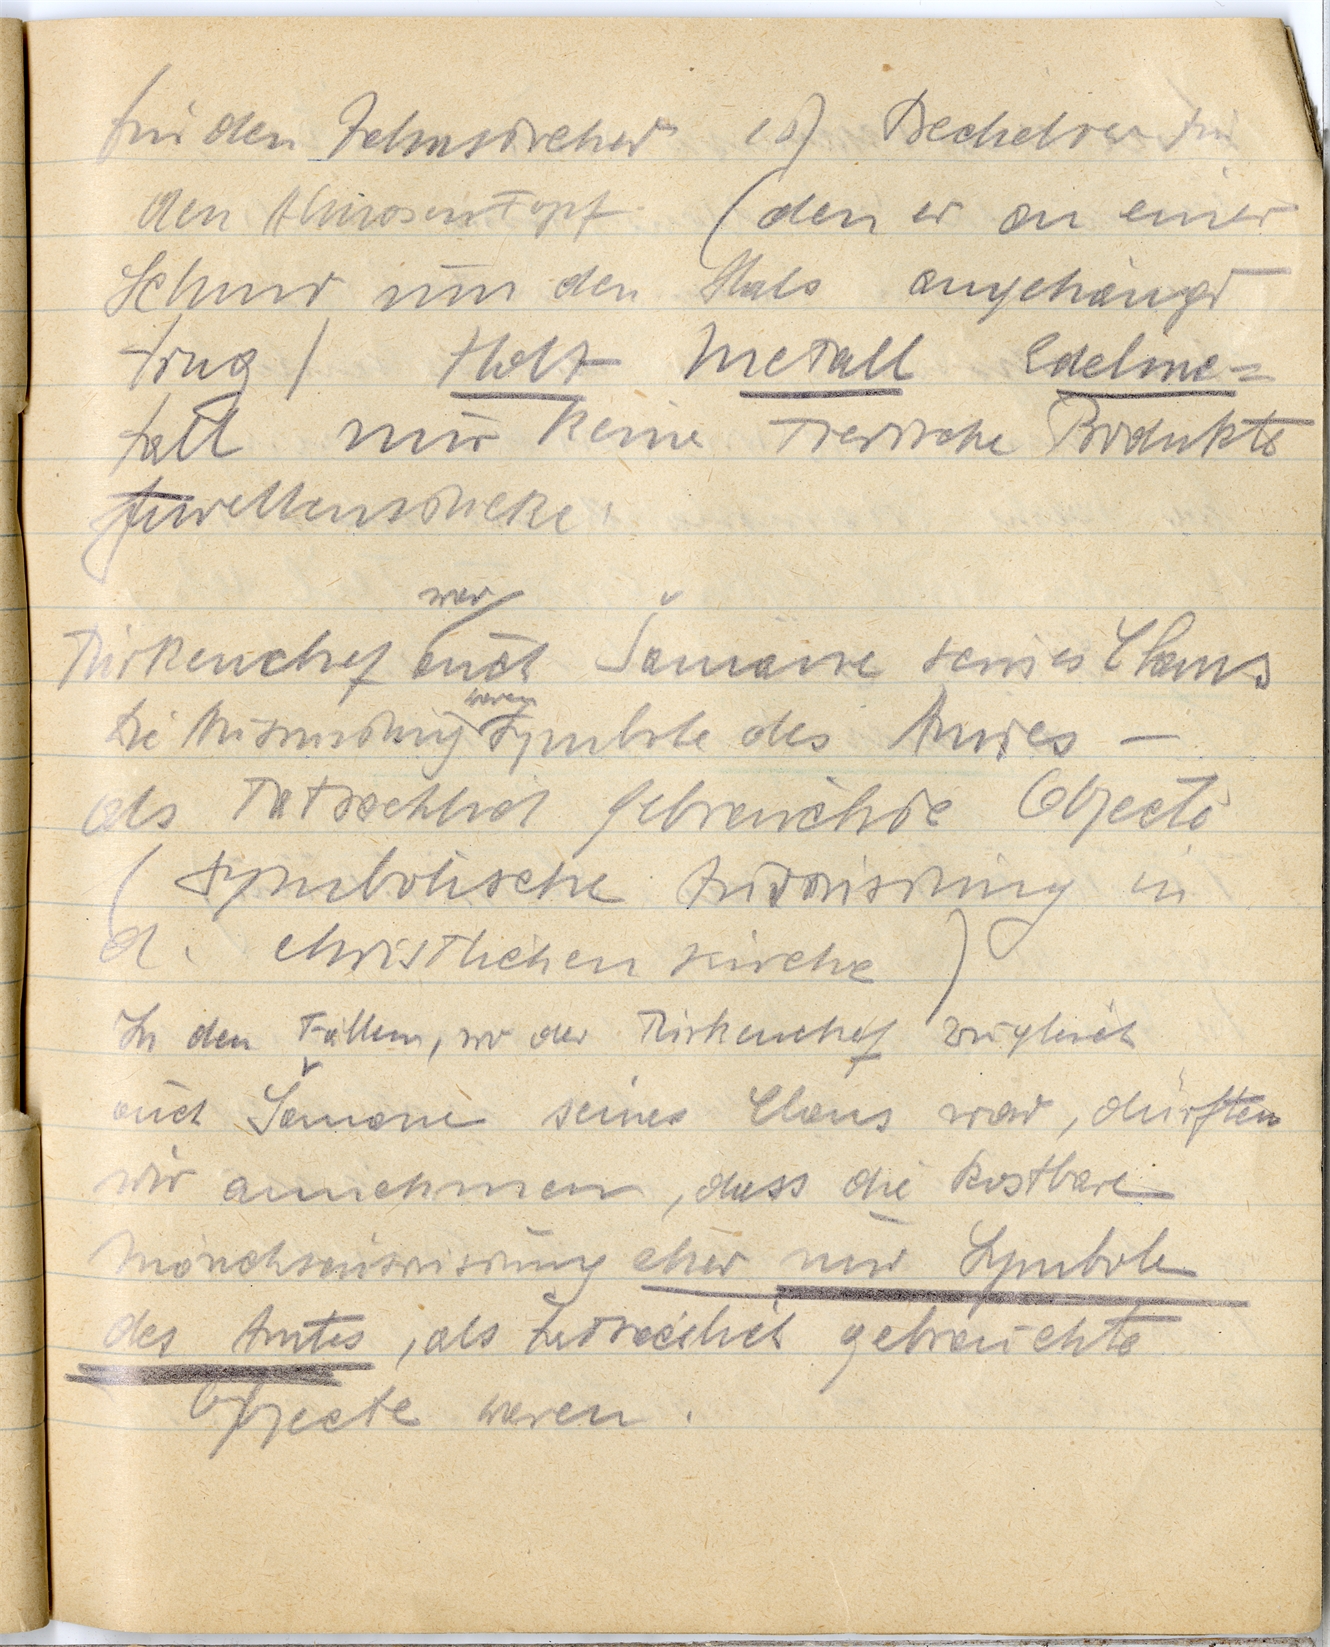 für den Zahnstocher 10) Deckel für
den Almosentopf (den er an einer
Schnur um den Hals angehängt
trug) Holz Metall Edelme=
tall nur keine tierische Produkte
Juwellenstücke.
war
Türkenchef auch Šamane seines Clans
waren
Die Ausrüstung Symbole des Amtes —
als tatsächlich gebrauchte Objecte
(symbolische Ausrüstung in
d. christlichen Kirche)
In den Fällen, wo der Türkenchef zugleich
auch Šamane seines Clans war, dürften
wir annehmen, dass die kostbare
Mönchsausrüstung eher nur Symbole
des Amtes, als tatsächlich gebrauchte
Objecte waren.